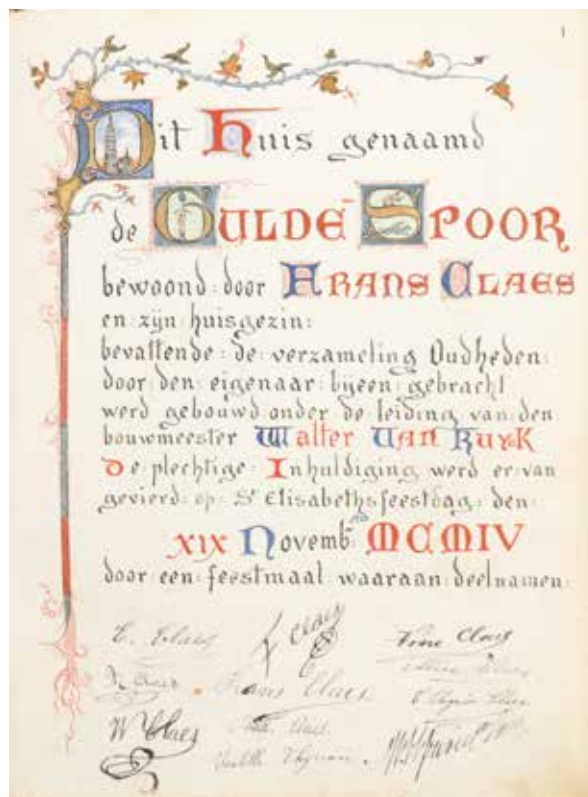 1
Dit Huis genaamd
de GULDE SPOOR
bewoond : door FRANS CLAES
en : zijn huisgezin :
bevattende : de : verzameling Oudheden :
door : den : eigenaar : bijeen : gebracht
werd gebouwd onder de leiding van den :
bouwmeester Walter VAN KUYK
De plechtige : Inhuldiging werd er van
gevierd : op : St Elisabethsfeestdag : den :
XIX Novembr MCMIV
door een : feestmaal : waaraan : deelnamen :
E. Claes Claes Claes
Frans Claes
W Claes